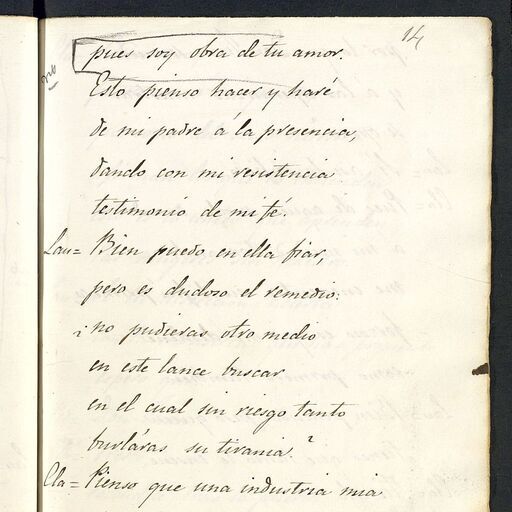 14
pues soy obra de tu amor.
no
Esto pienso hacer y haré
de mi padre á la presencia,
dando con mi resistencia
testimonio de mi fé.
Lau= Bien puedo en ella fiar,
pero es dudoso el remedio:
¿no pudieras otro medio
en este lance buscar
en el cual sin riesgo tanto
burláras su tirania?
Cla= Pienso que una industria mia